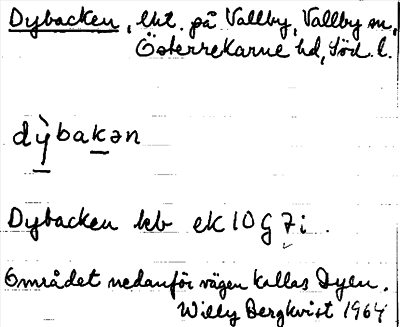 Dybacken, lht. på Vallby, Vallby sn,
Österrekarne hd, Söd. l.
dỳ̖bakən
Dybacken kb ek 10 G 7 i.
Området nedanför vägen kallas Dyen.
Willy Bergkvist 1964